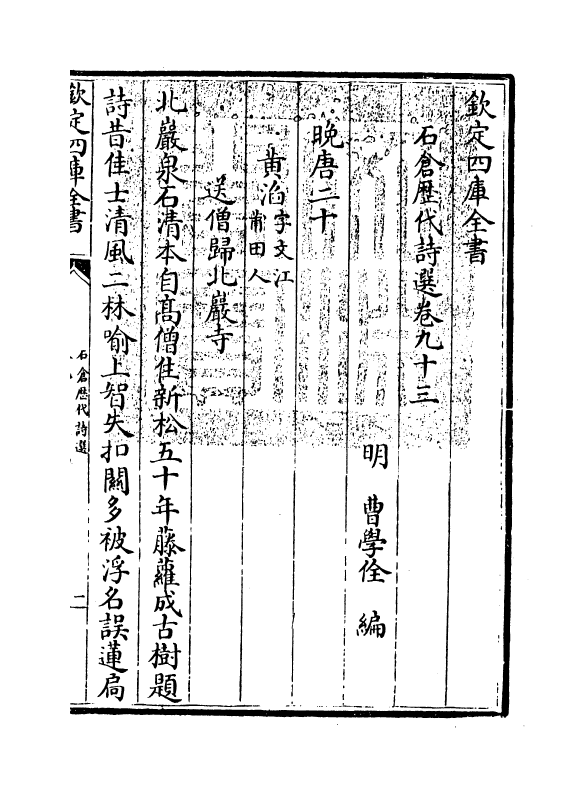 欽定四庫全書
石倉歴代詩選卷九十三
明 曹學佺 編
晚唐二十
黄滔字文江莆田人
送僧歸北巖寺
北巖泉石清本自髙僧住新松五十年藤蘿成古樹題
詩昔佳士清風二林喻上智失扣關多被浮名誤蓮扃
欽定四庫全書
石倉歷代詩選